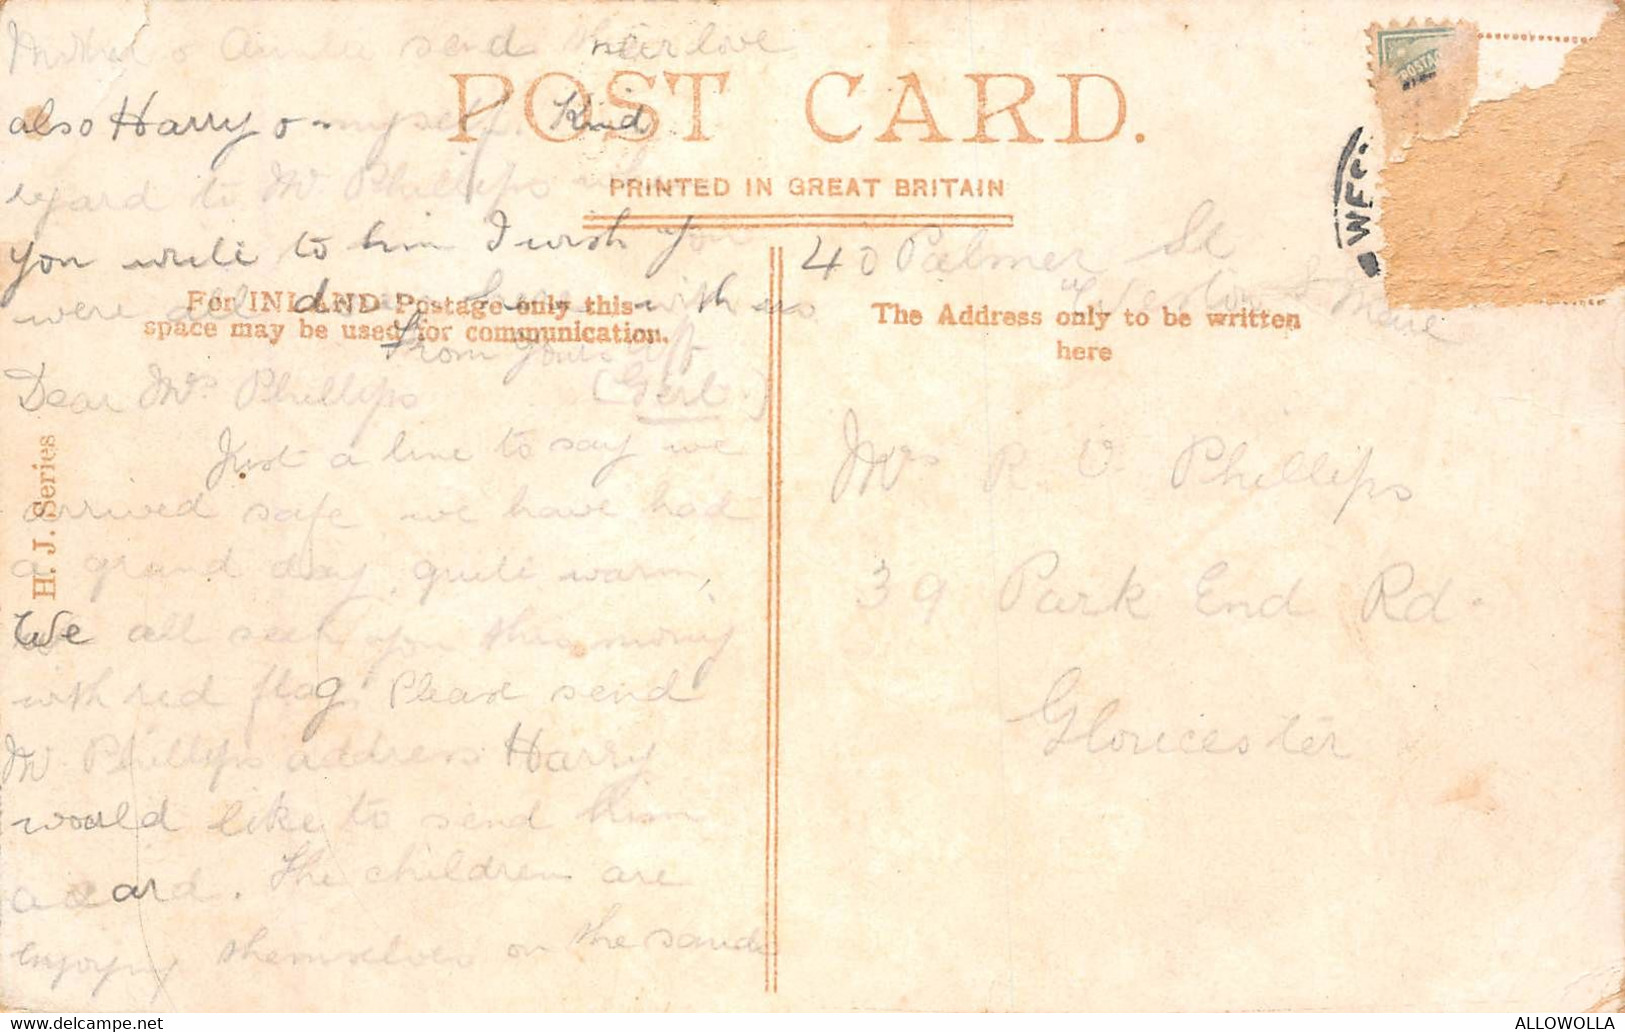 Mother & Auntie send their love
also Harry & myself. Kind
regard to Mr Phillips when
you write to him I wish you
were all down here with us
From Yours aff
(Gert.)
POST CARD.
PRINTED IN GREAT BRITAIN
For INLAND Postage only this
space may be used for communication.
The Address only to be written
here
H. J. Series
Dear Mrs Phillips
Just a line to say we
arrived safe we have had
a grand day, quite warm,
We all seen you this morng
with red flag. Please send
Mr Phillips address Harry
would like to send him
a card. The children are
enjoying themselves on the sands
40 Palmer St
Weston S Mare
Mrs R. V Phillips
39 Park End Rd.
Gloucester
POSTAG
WES
ALLOWOLLA